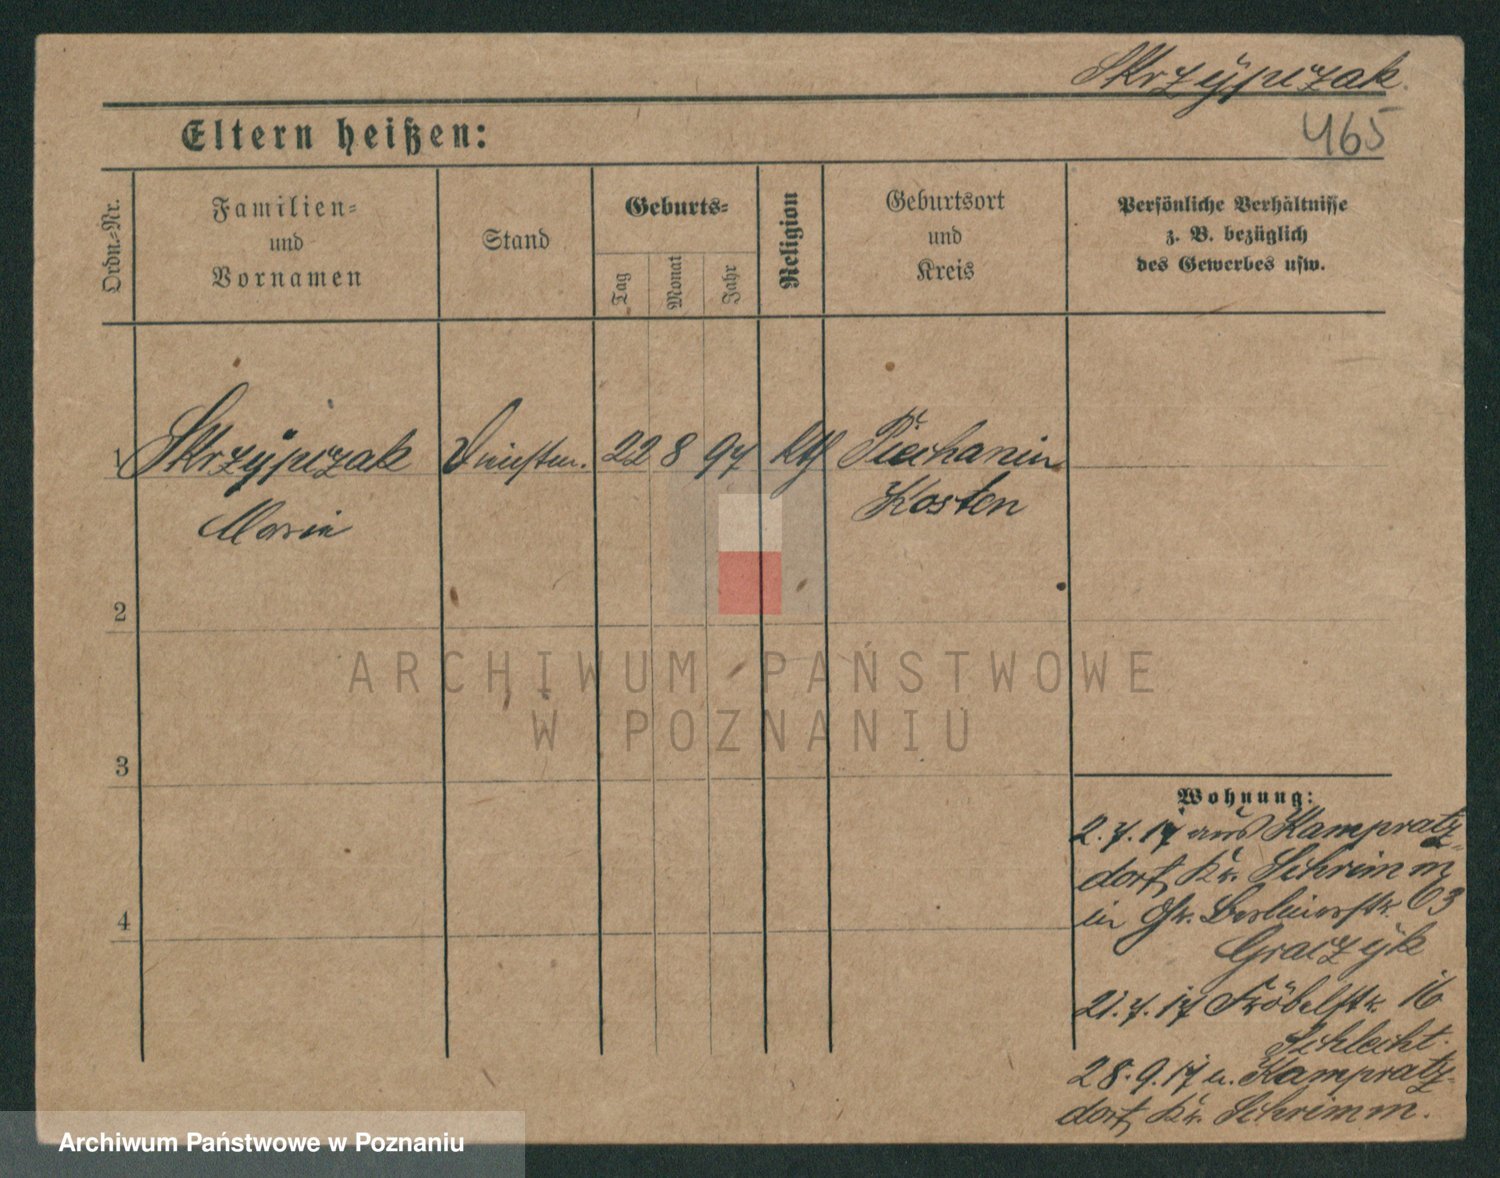 Skrzÿpczak.
465
Eltern heißen:
Ordn.-Nr.
Familien-
und
Vornamen
Stand
Geburts-
Tag
Monat
Jahr
Religion
Geburtsort
und
Kreis
Persönliche Verhältnisse
z. B. bezüglich
des Gewerbes usw.
1 Skrzÿpczak 22 8 97 kth Piechanin
Marie Kosten
2
3
4
ARCHIWUM PAŃSTWOWE
W POZNANIU
Wohnung:
2.7.17 aus Kampratz-
dorf, Kr. Schrimm
in Gr. Berlinerstr. 63
Graczÿk
21.7.17 Fröbelstr. 16
Schlecht.
28.9.17 n. Kampratz-
dorf, Kr. Schrimm.
Archiwum Państwowe w Poznaniu